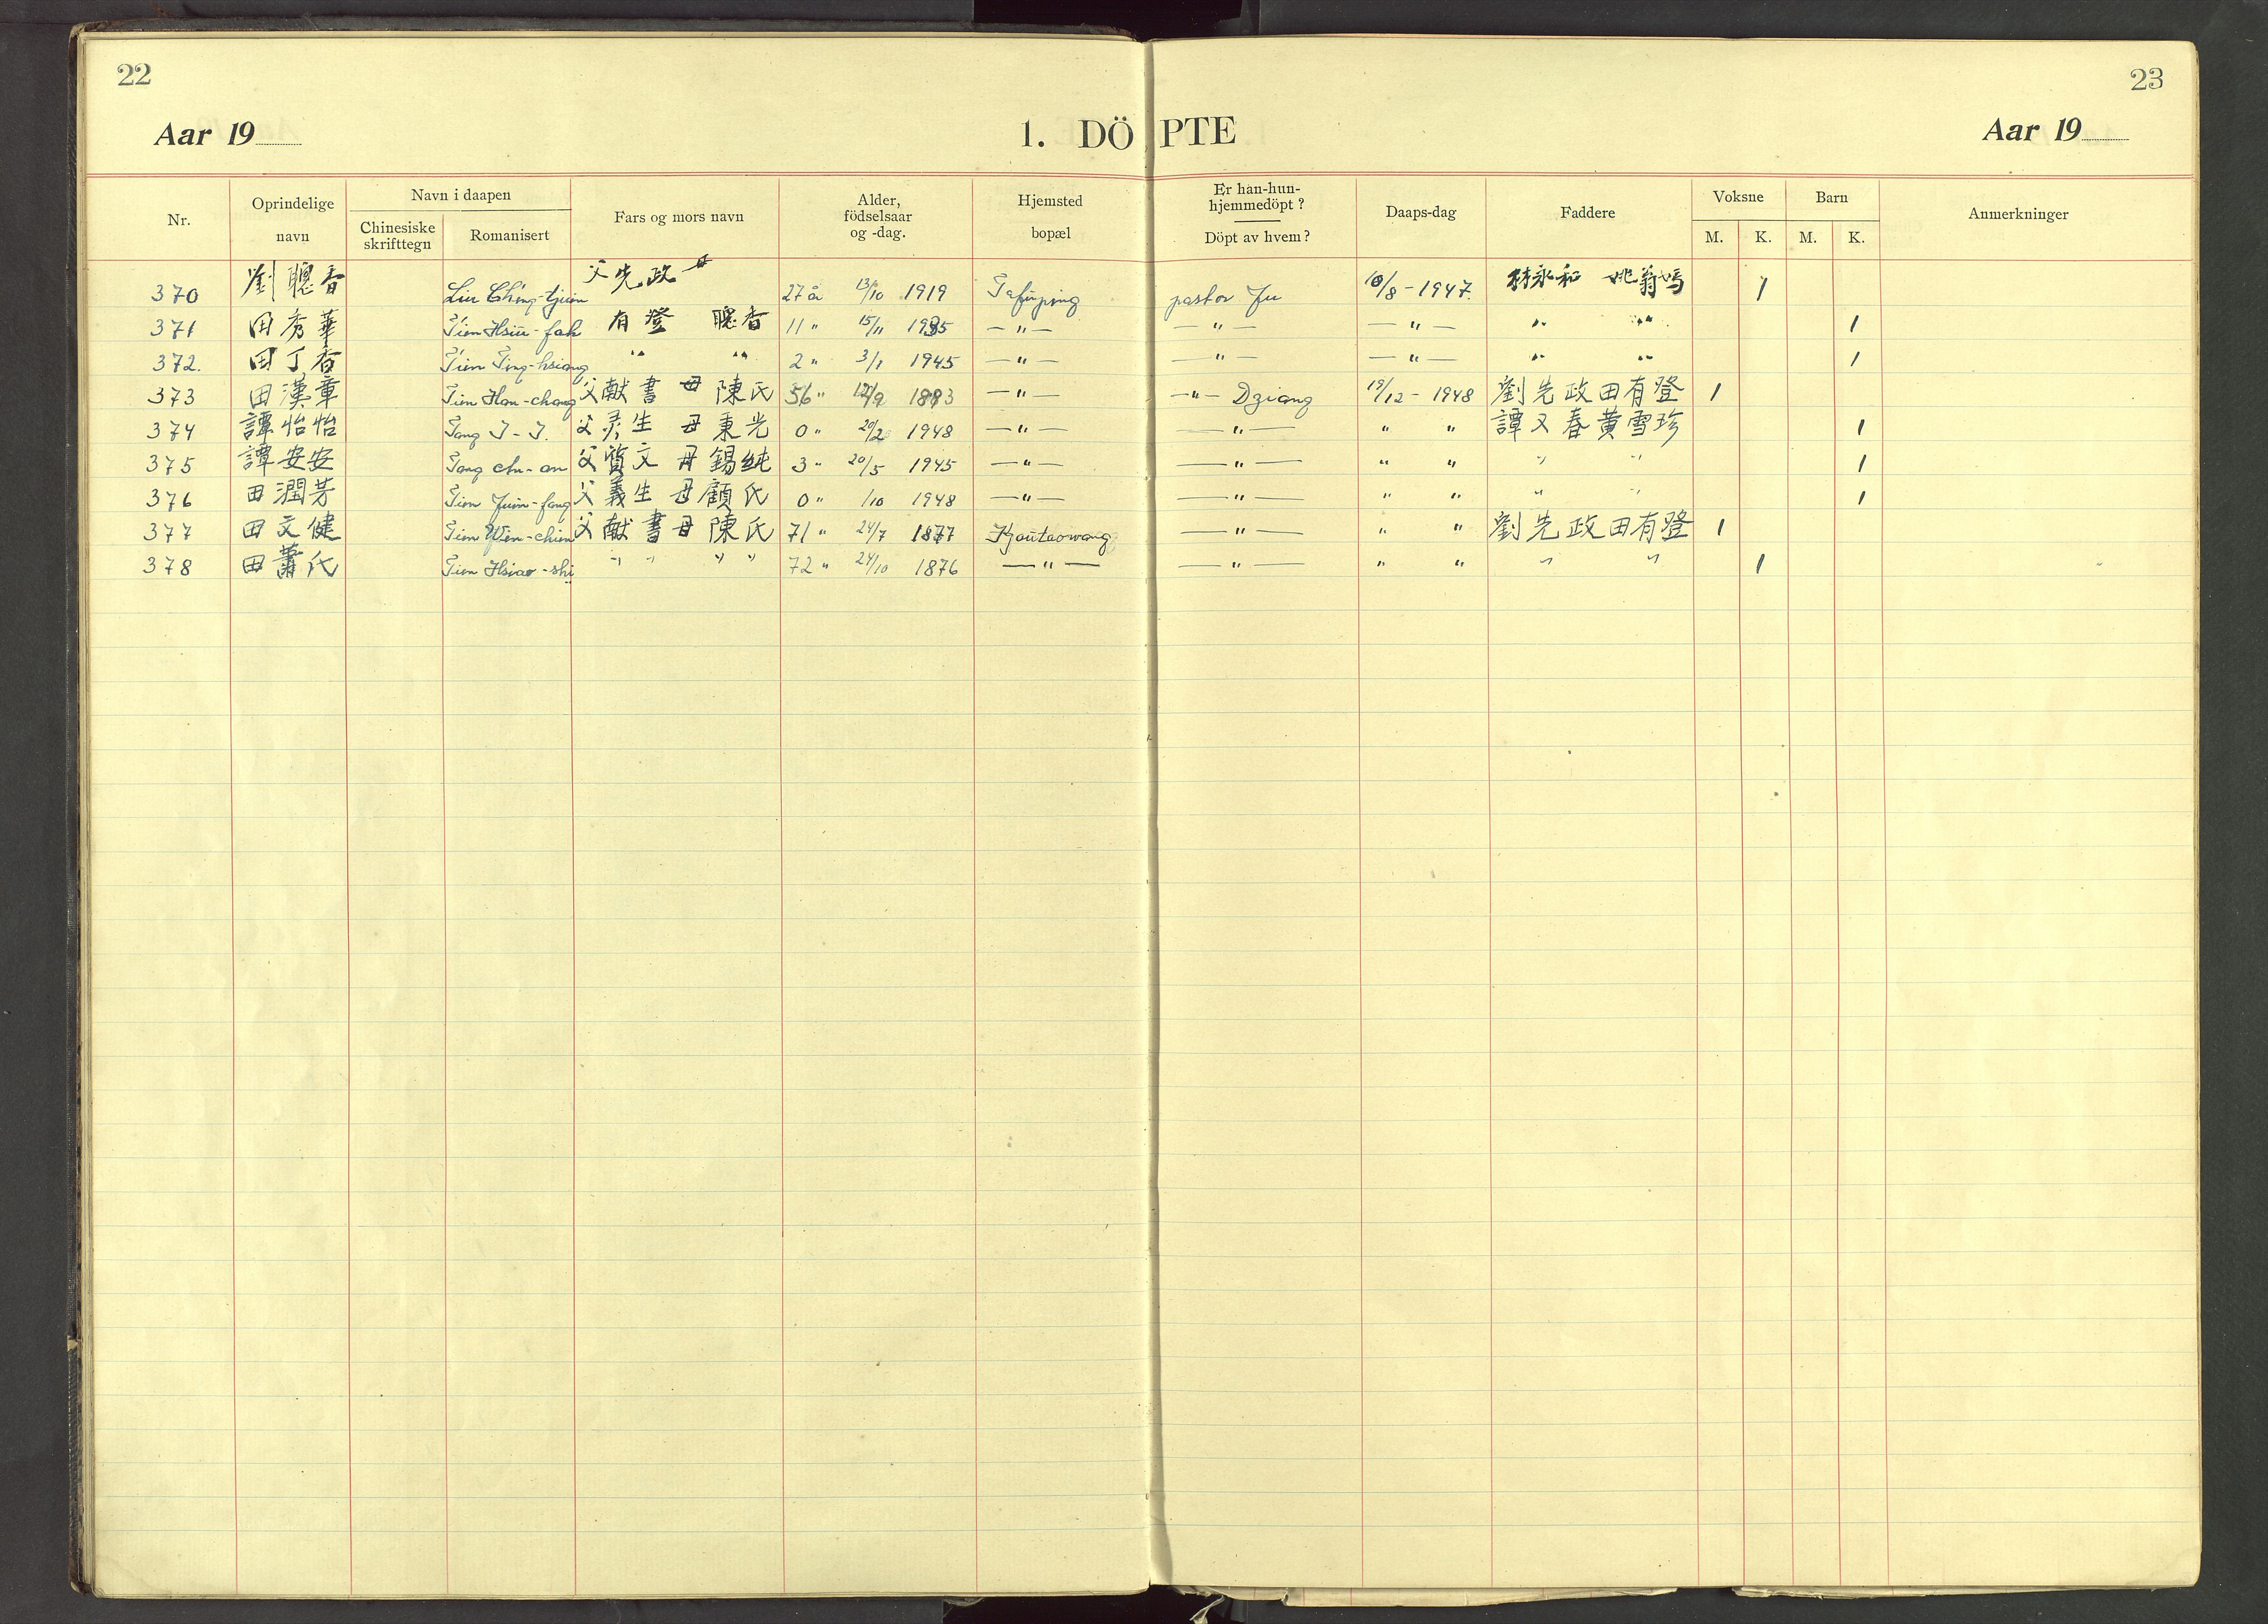 22
23
Aar 19
1. DÖPTE
Aar 19
Nr.
Oprindelige navn
Navn i daapen
Chinesiske skrifttegn
Romanisert
Fars og mors navn
Alder, födselsaar og -dag.
Hjemsted bopæl
Er han-hun-hjemmedöpt?
Döpt av hvem?
Daaps-dag
Faddere
Voksne
M. K.
Barn
M. K.
Anmerkninger
370 劉聰香 Liu 父先政 母 27 år 13/10 1919 Tafuping pastor Fu 10/8-1947. 林永和 姚翁媽 1
371 田秀華 Tien Hsiu-fah 有澄 聰香 11 " 15/11 1935 —"— —"— —"— " " 1
372. 田丁香 Tien Ting-hsiang " " 2 " 3/1 1945 —"— —"— —"— " " 1
373 田漢章 Tien Han-chang 父献書 母陳氏 56 " 12/9 1893 —"— —"— Dziang 19/12-1948 劉先政田有登 1
374 譚怡怡 Tang I-I. 父灵生 母東光 0 " 20/2 1948 —"— —"— " " 譚又春黄雪珍 1
375 譚安安 Tang an-an 父質文 母錫純 3 " 20/5 1945 —"— —"— " " " " 1
376 田潤芳 Tien Juin-fang 父義生 母顧氏 0 " /10 1948 —"— —"— " " " " 1
377 田文健 Tien Wen-chien 父献書母陳氏 71 " 24/7 1877 Kjautaowang —"— " " 劉先政田有登 1
378 田蕭氏 Tien Hsiao-shi " " " " 72 " 24/10 1876 —"— —"— " " " " 1